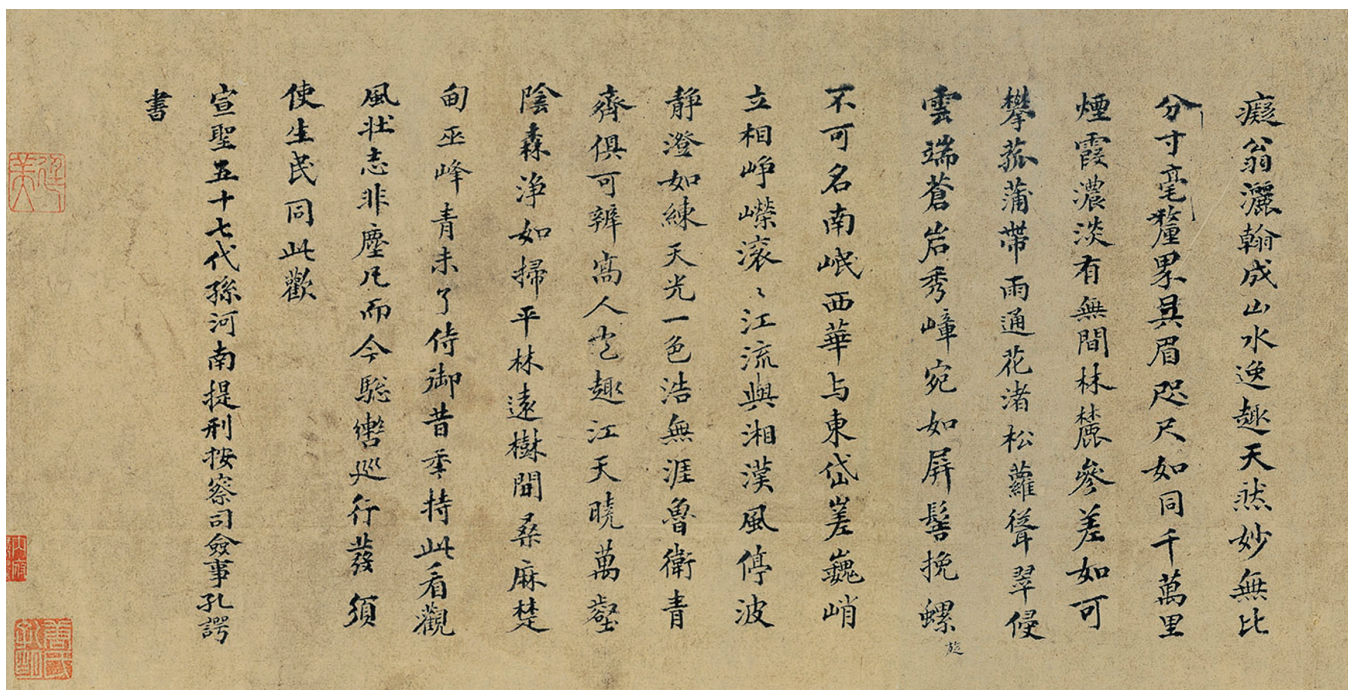 癡翁灑翰成山水逸趣天然妙無比
分寸毫釐界具眉咫尺如同千萬里
煙霞濃淡有無間林麓參差如可
攀菰蒲帶雨通花渚松蘿聳翠侵
雲端蒼岩秀嶂宛如屏髻挽螺旋
不可名南岷西華与東岱嵳巍峭
立相崢嶸滚〻江流與湘漢風停波
静澄如練天光一色浩無涯魯衛青
齊俱可辨寫人意趣江天曉萬壑
陰森浄如掃平林遠樹間桑麻楚
甸巫峰青未了侍御昔年持此看觀
風壮志非塵凡而今驄轡巡行發須
使生民同此歡
宣聖五十七代孫河南提刑按察司僉事孔諤
書